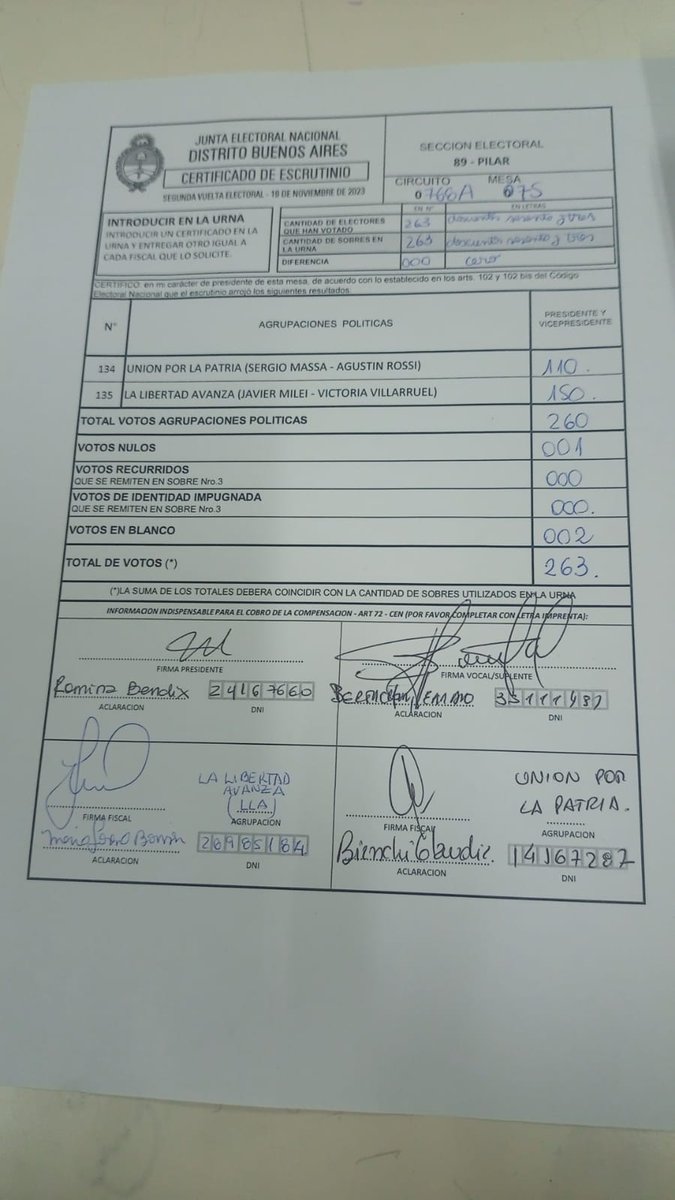 JUNTA ELECTORAL NACIONAL
DISTRITO BUENOS AIRES
CERTIFICADO DE ESCRUTINIO
SEGUNDA VUELTA ELECTORAL - 19 DE NOVIEMBRE DE 2023
SECCION ELECTORAL
89 - PILAR
CIRCUITO MESA
0768A 075
INTRODUCIR EN LA URNA
INTRODUCIR UN CERTIFICADO EN LA
URNA Y ENTREGAR OTRO IGUAL A
CADA FISCAL QUE LO SOLICITE.
EN N° EN LETRAS
CANTIDAD DE ELECTORES
QUE HAN VOTADO 263 doscientos sesenta y tres
CANTIDAD DE SOBRES EN
LA URNA 263 doscientos sesenta y tres
DIFERENCIA 000 cero
CERTIFICO: en mi carácter de presidente de esta mesa, de acuerdo con lo establecido en los arts. 102 y 102 bis del Código
Electoral Nacional que el escrutinio arrojó los siguientes resultados
N° AGRUPACIONES POLITICAS PRESIDENTE Y
VICEPRESIDENTE
134 UNION POR LA PATRIA (SERGIO MASSA - AGUSTIN ROSSI) 110.
135 LA LIBERTAD AVANZA (JAVIER MILEI - VICTORIA VILLARRUEL) 150.
TOTAL VOTOS AGRUPACIONES POLITICAS 260
VOTOS NULOS 001
VOTOS RECURRIDOS
QUE SE REMITEN EN SOBRE Nro.3 000
VOTOS DE IDENTIDAD IMPUGNADA
QUE SE REMITEN EN SOBRE Nro.3 000.
VOTOS EN BLANCO 002
TOTAL DE VOTOS (*) 263.
(*)LA SUMA DE LOS TOTALES DEBERA COINCIDIR CON LA CANTIDAD DE SOBRES UTILIZADOS EN LA URNA
INFORMACION INDISPENSABLE PARA EL COBRO DE LA COMPENSACION - ART 72 - CEN (POR FAVOR COMPLETAR CON LETRA IMPRENTA):
FIRMA PRESIDENTE
Romina Bendix 24167660
ACLARACION DNI
FIRMA VOCAL/SUPLENTE
ACLARACION DNI
LA LIBERTAD
AVANZA
(LLA)
FIRMA FISCAL AGRUPACION
28985184
ACLARACION DNI
UNION POR
LA PATRIA.
FIRMA FISCAL AGRUPACION
Bianchi Claudia. 14167287
ACLARACION DNI